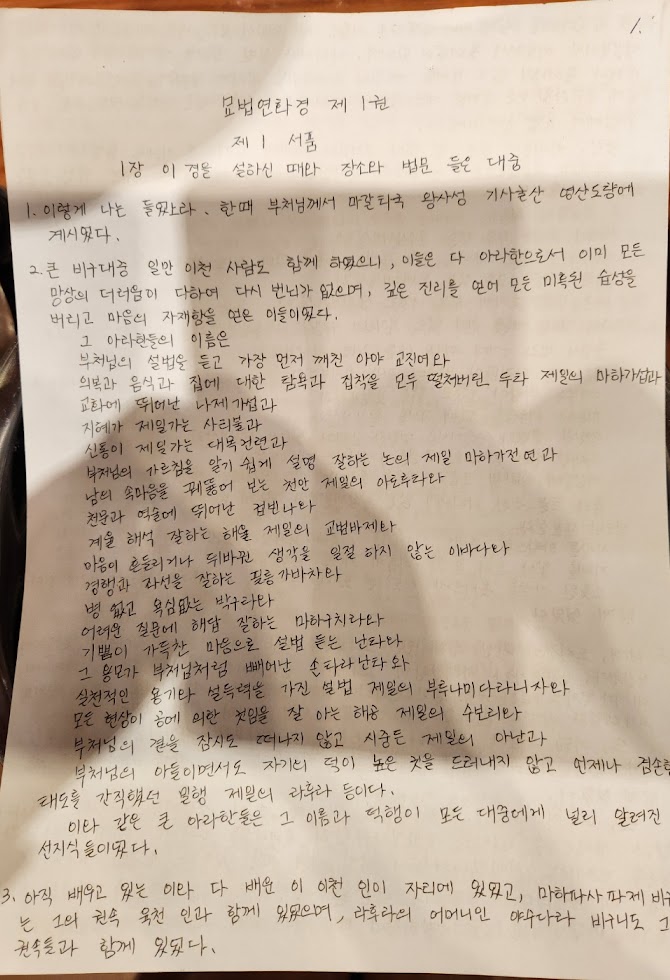 1.
묘법연화경 제 1권
제 1 서품
1장 이 경을 설하신 때와 장소와 법문 들은 대중
1. 이렇게 나는 들었노라. 한때 부처님께서 마갈타국 왕사성 기사굴산 영산도량에
계시었다.
2. 큰 비구대중 일만 이천 사람도 함께 하였으니, 이들은 다 아라한으로서 이미 모든
망상의 더러움이 다하여 다시 번뇌가 없으며, 깊은 진리를 얻어 모든 미혹된 습성을
버리고 마음의 자재함을 얻은 이들이었다.
그 아라한들의 이름은
부처님의 설법을 듣고 가장 먼저 깨친 아야 교진여와
의복과 음식과 집에 대한 탐욕과 집착을 모두 떨쳐버린 두타 제일의 마하가섭과
교화에 뛰어난 나제가섭과
지혜가 제일가는 사리불과
신통이 제일가는 대목건련과
부처님의 가르침을 알기 쉽게 설명 잘하는 논의 제일 마하가전연과
남의 속마음을 꿰뚫어 보는 천안 제일의 아로루타와
천문과 역술에 뛰어난 겁빈나와
계율 해석 잘하는 해율 제일의 교범바제와
마음이 흔들리거나 뒤바뀐 생각을 일절 하지 않는 이바다와
경행과 좌선을 잘하는 필릉가바차와
병 없고 욕심없는 박구라와
어려운 질문에 해답 잘하는 마하구치라와
기쁨이 가득찬 마음으로 설법 듣는 난타와
그 용모가 부처님처럼 빼어난 손타라난타와
실천적인 용기와 설득력을 가진 설법 제일의 부루나미다라니자와
모든 현상이 공에 의한 것임을 잘 아는 해공 제일의 수보리와
부처님의 곁을 잠시도 떠나지 않고 시중든 제일의 아난과
부처님의 아들이면서도 자기의 덕이 높은 것을 드러내지 않고 언제나 겸손한
태도를 간직했던 밀행 제일의 라후라 등이다.
이와 같은 큰 아라한들은 그 이름과 덕행이 모든 대중에게 널리 알려진
선지식들이었다.
3. 아직 배우고 있는 이와 다 배운 이 이천 인이 자리에 있었고, 마하파사파제 비구
는 그의 권속 육천 인과 함께 있었으며, 라후라의 어머니인 야수다라 비구니도 그
권속들과 함께 있었다.